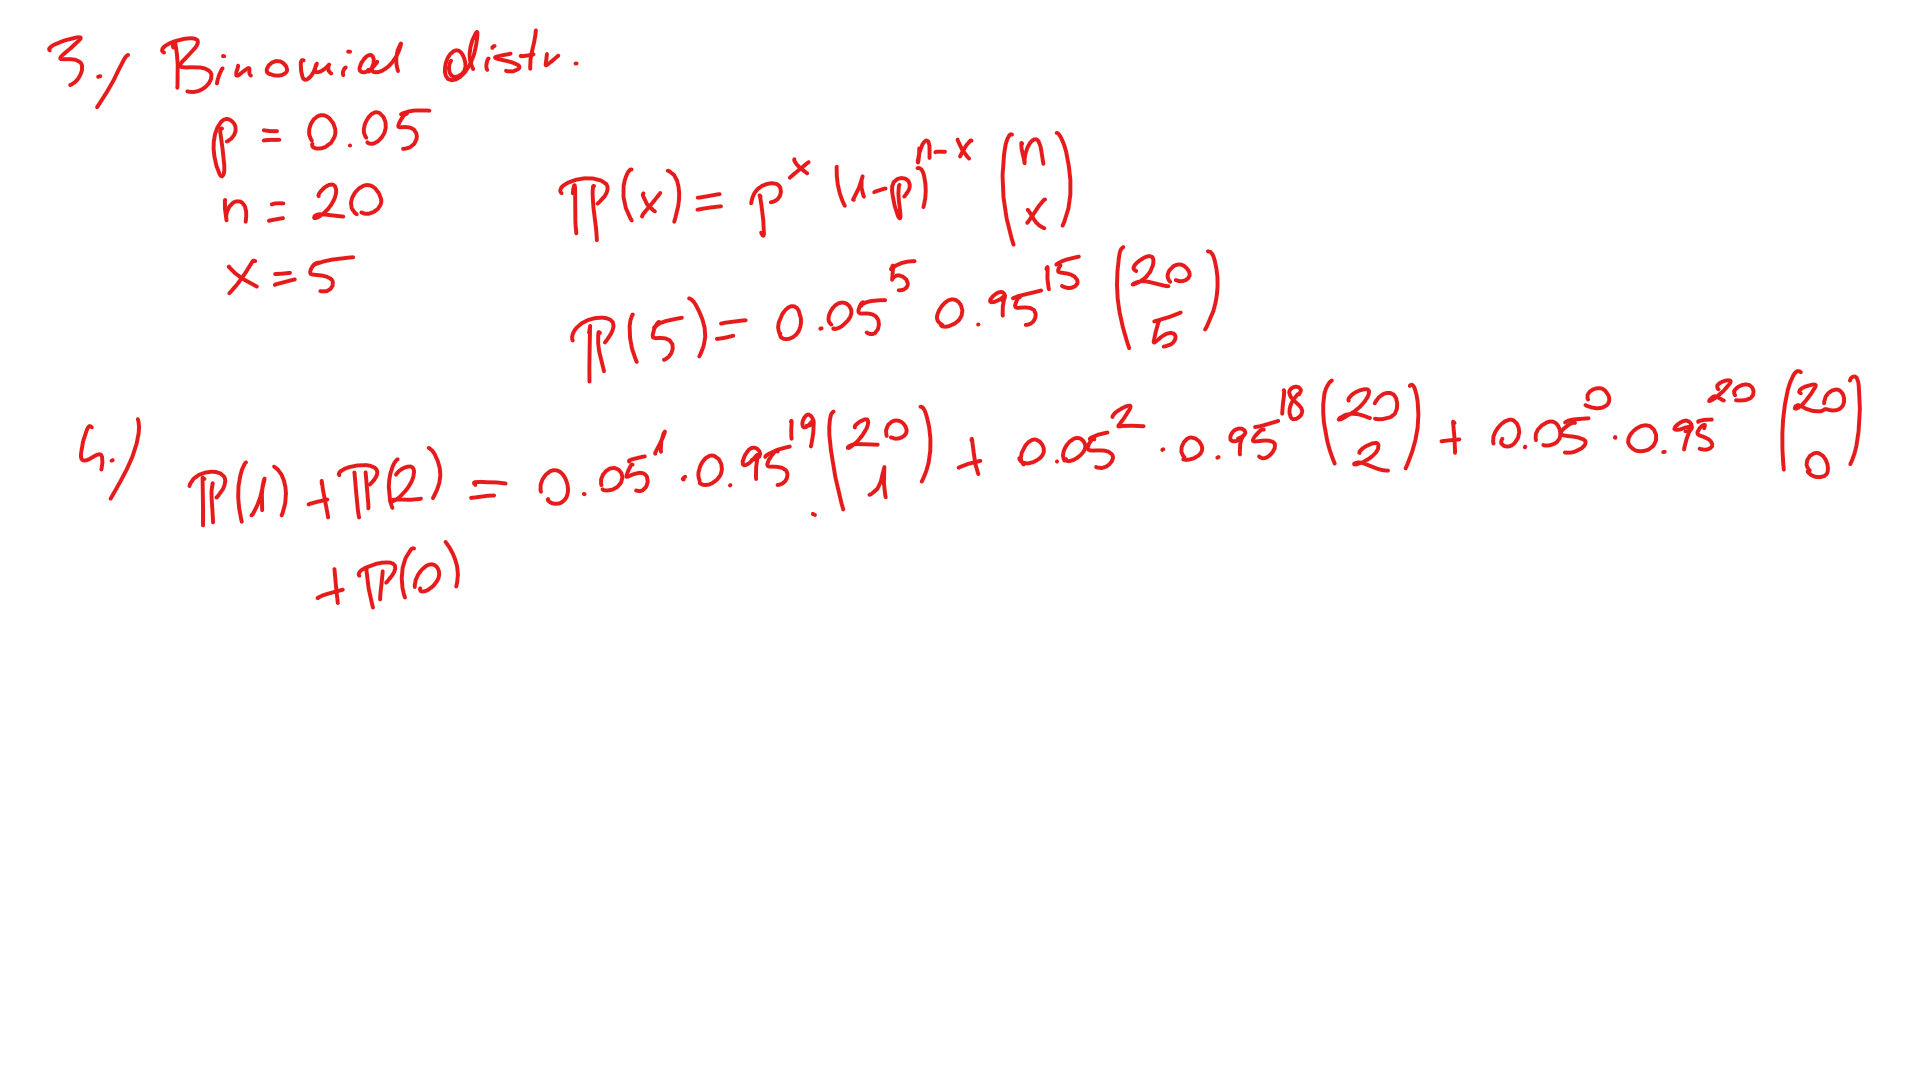 3./ Binomial distr.
p = 0.05
n = 20
x = 5
ℙ(x) = p^x (1-p)^{n-x} \binom{n}{x}
ℙ(5) = 0.05^5 0.95^{15} \binom{20}{5}
4./ ℙ(1) + ℙ(2) = 0.05^1 · 0.95^{19} \binom{20}{1} + 0.05^2 · 0.95^{18} \binom{20}{2} + 0.05^0 · 0.95^{20} \binom{20}{0}
+ ℙ(0)